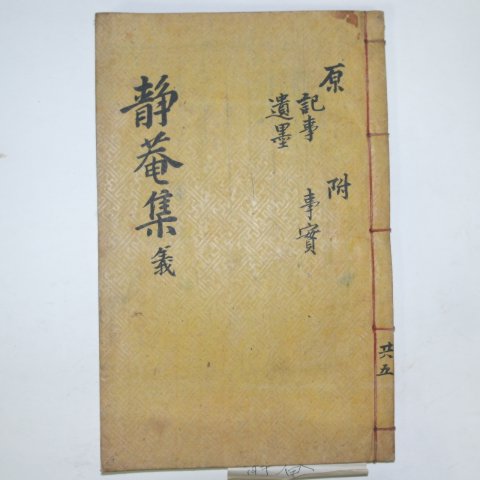 原 附
記事 事實
遺墨
靜菴集 義
共五